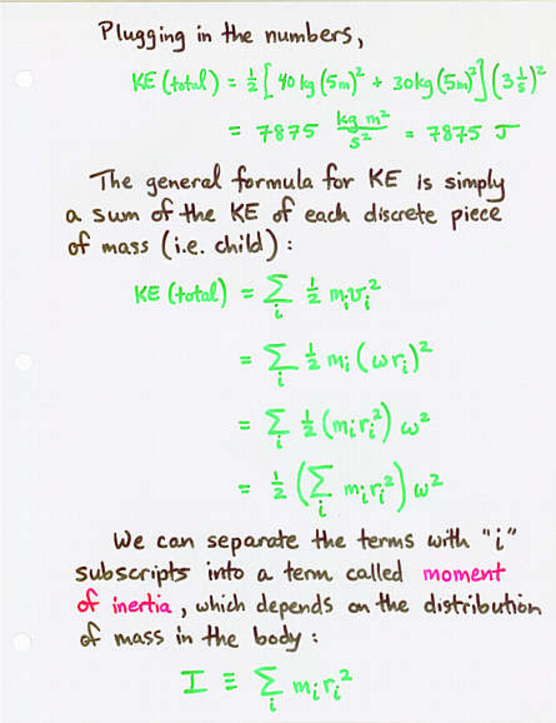 Plugging in the numbers,
KE (total) = 1/2 [ 40 kg (5m)² + 30kg (5m)² ] (3 1/s)²
= 7875 kg m²/s² = 7875 J
The general formula for KE is simply
a sum of the KE of each discrete piece
of mass (i.e. child) :
KE (total) = Σᵢ 1/2 mᵢvᵢ²
= Σᵢ 1/2 mᵢ (ωrᵢ)²
= Σᵢ 1/2 (mᵢrᵢ²) ω²
= 1/2 (Σᵢ mᵢrᵢ²) ω²
We can separate the terms with "i"
subscripts into a term called moment
of inertia, which depends on the distribution
of mass in the body :
I ≡ Σᵢ mᵢrᵢ²